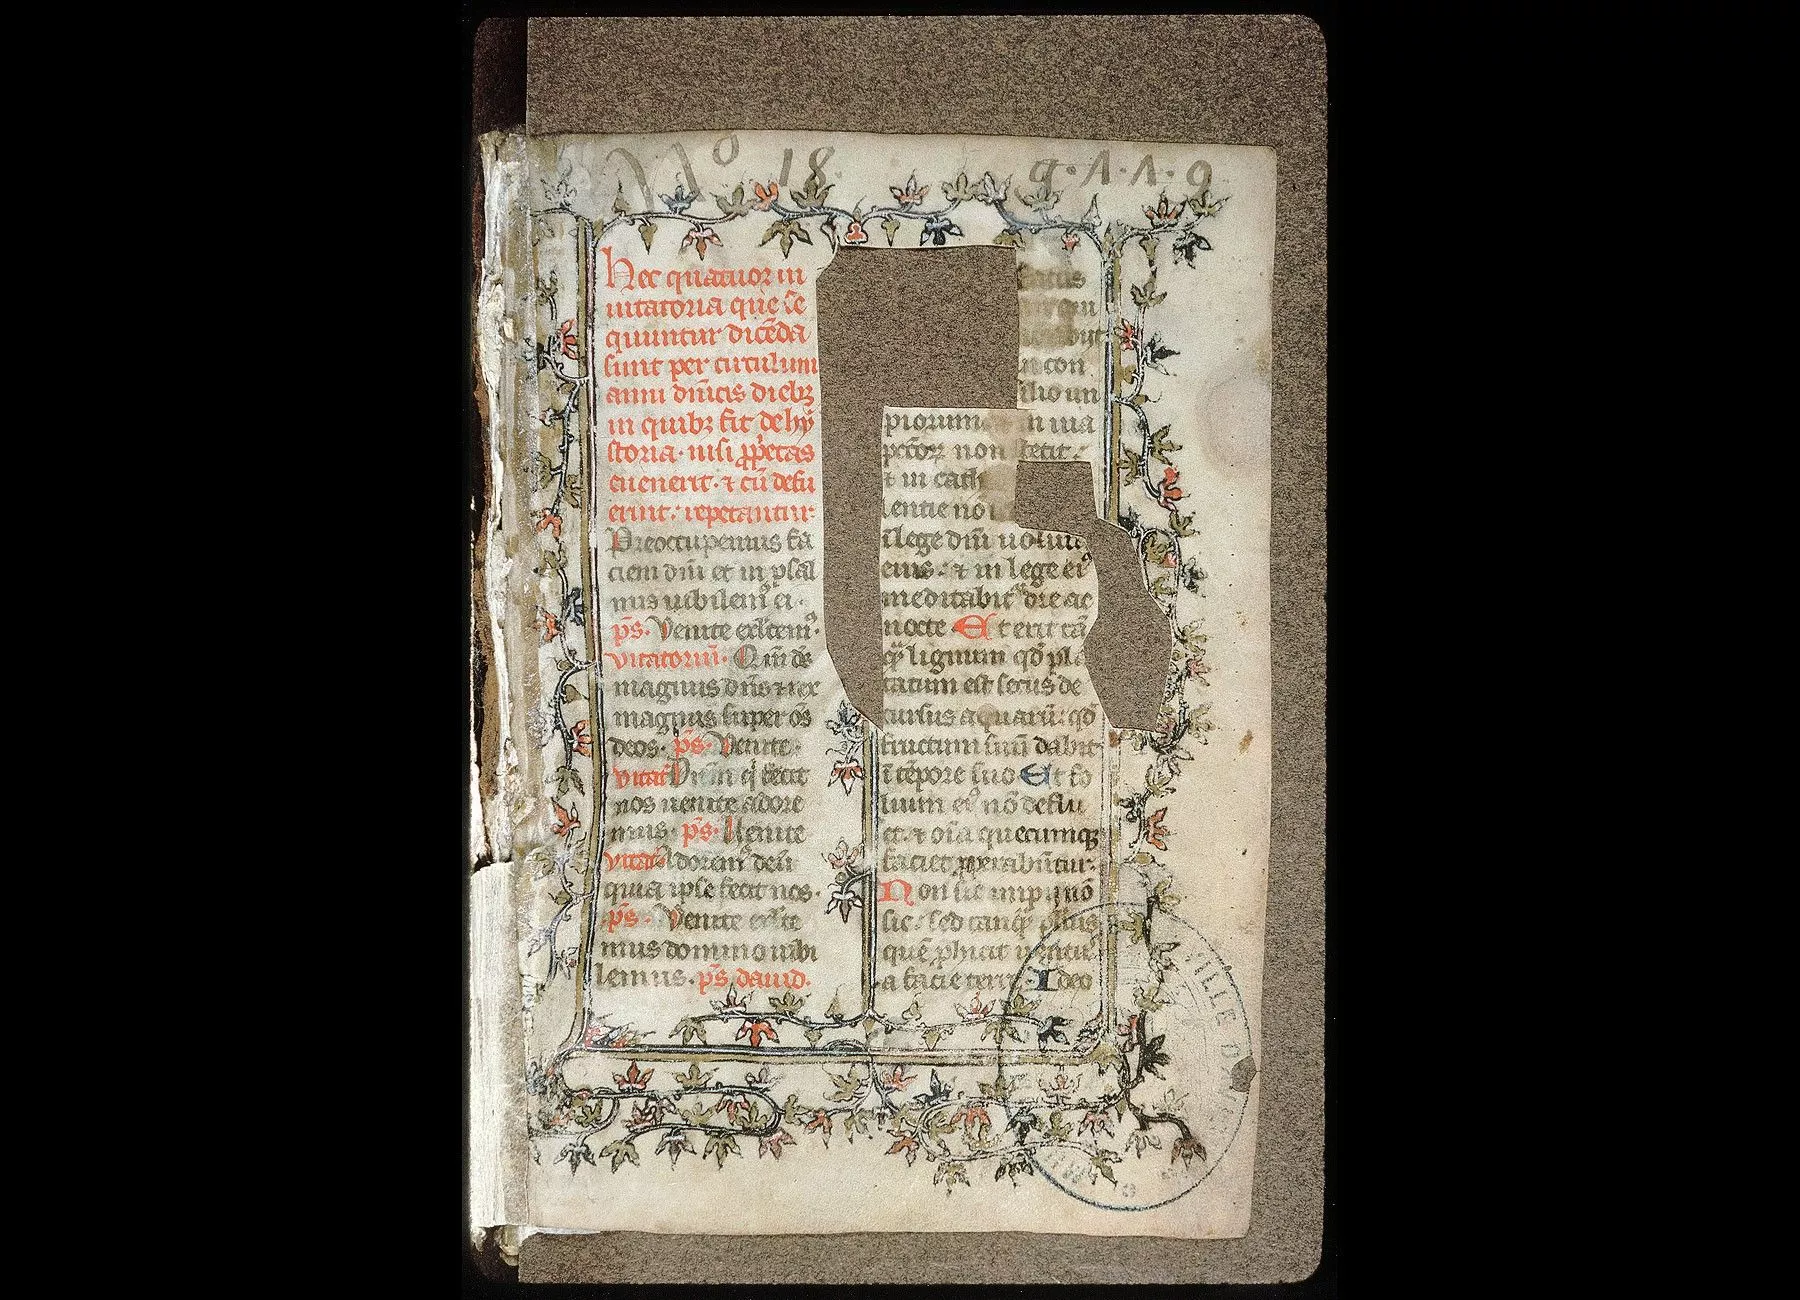 No 18.
a.Λ.Λ.9
Hec quatuor in
uitatoria que se
quuntur dicẽda
sunt per circulum
anni dñicis diebꝫ
in quibꝫ fit de hy
storia. nisi ꝓpetas
euenerit. ⁊ cũ defu
erint. repetantur.
Preoccupemus fa
ciem dñi et in psal
mis iubilemꝰ ei.
p̃s. Venite exl̾temꝰ.
vitatoriũ. Qm̃ ds̃
magnus dñs ⁊ rex
magnus super oẽs
deos. p̃s. Venite.
vitat̃ Dñm q̾ fecit
nos uenite adore
mus. p̃s. Uenite
vitat̃ Adoremꝰ deũ
quia ipse fecit nos.
p̃s. Venite exl̾te
mus domino iubi
lemus. p̃s dauid.
con
silio im
piorum in uia
pctõꝝ non stetit.
⁊ in cath
lentie no
ĩ lege dñi uolun
eius. ⁊ in lege eiꝰ
meditabit̾ die ac
nocte Et erit tã
qᷓ lignum qđ plã
tatum est secus de
cursus aquarũ. qđ
fructum suũ dabit
ĩ tẽpore suo Et fo
lium eiꝰ nõ deflu
et. ⁊ oĩa quecumqꝫ
faciet ꝓsperabũtur.
Non sic impij nõ
sic. sed tanqᷓ puluis
quẽ ꝓhicit uentꝰ
a facie terre. Ideo
VILLE D